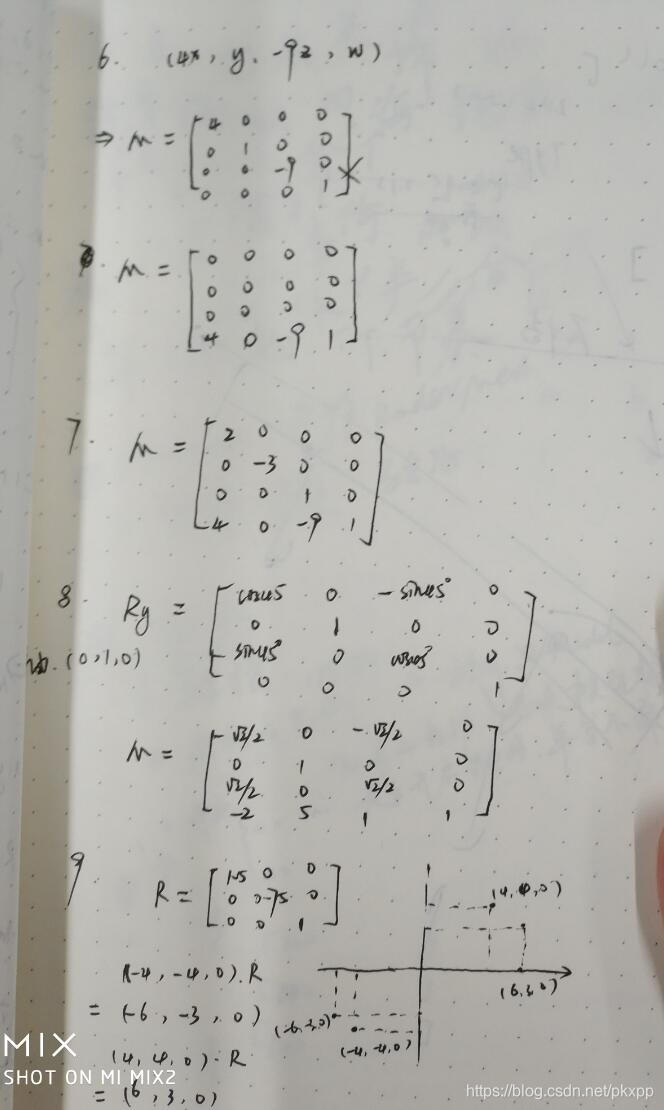 6. (4x, y, -9z, w)
⇒ M = [ 4 0 0 0
0 1 0 0
0 0 -9 0
0 0 0 1 ]
M = [ 0 0 0 0
0 0 0 0
0 0 0 0
4 0 -9 1 ]
7. M = [ 2 0 0 0
0 -3 0 0
0 0 1 0
4 0 -9 1 ]
8. Ry = [ cos45 0 -sin45° 0
0 1 0 0
sin45° 0 cos45° 0
0 0 0 1 ]
(0,1,0)
M = [ √2/2 0 -√2/2 0
0 1 0 0
√2/2 0 √2/2 0
-2 5 1 1 ]
9 R = [ 1.5 0 0
0 0.75 0
0 0 1 ]
(-4, -4, 0). R
= (-6, -3, 0)
(4, 4, 0). R
= (6, 3, 0)
(4,4,0)
(6,3,0)
(-6,-3,0)
(-4,-4,0)
MIX
SHOT ON MI MIX2
https://blog.csdn.net/pkxpp